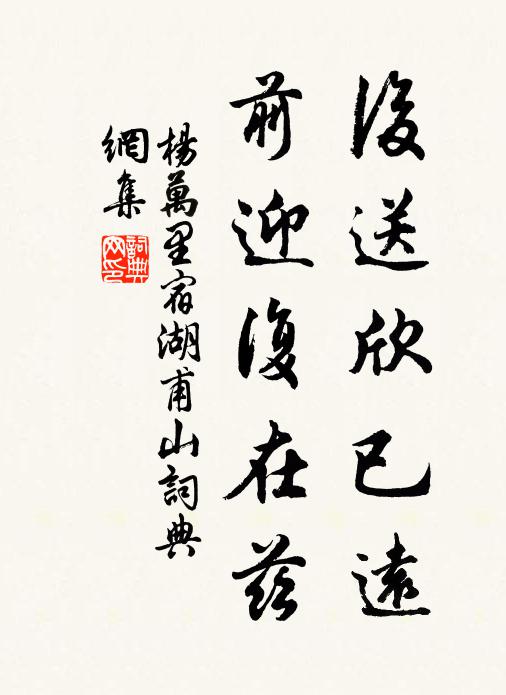 後送欣已遠
前迎復在茲
楊萬里宿湖甫山詞典
網集
詞典网印